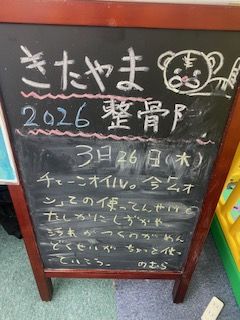 きたやま
2026 整骨院
3月26日(木)
チェーンオイル。今ムオ
ン」ての使ってんやけど
たしかにしずかや
汚れがつくのがめん
どくせいが ちょっと使っ
ていこう。 のむら